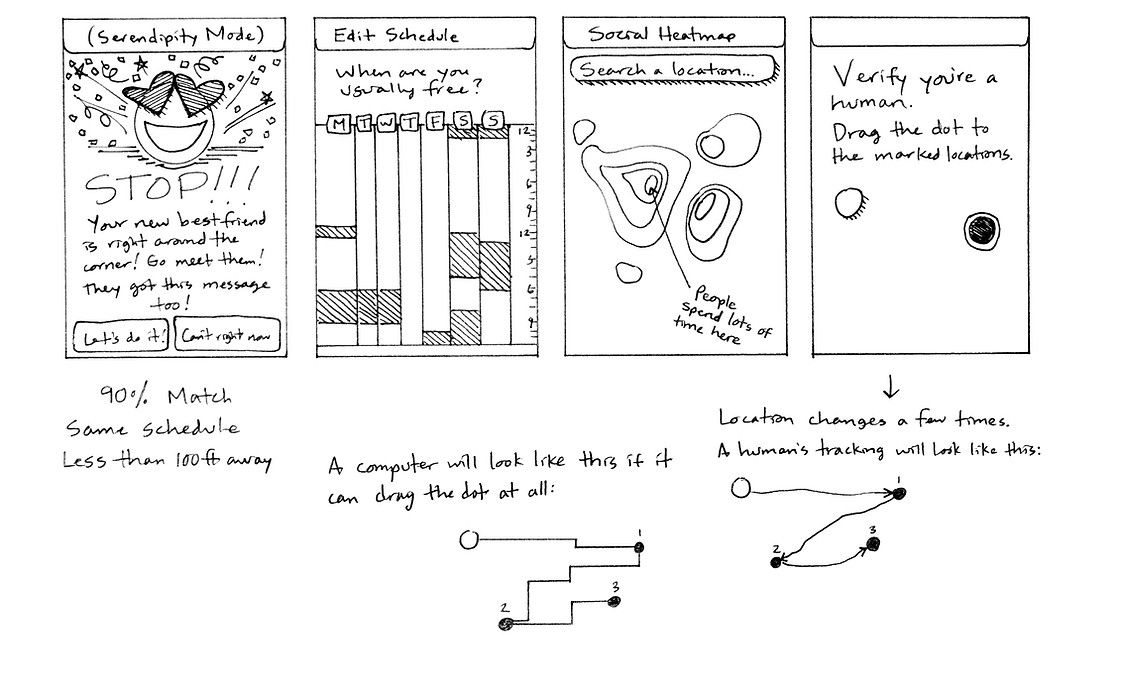 (Serendipity Mode)
STOP!!!
Your new best friend
is right around the
corner! Go meet them!
They got this message
too!
Let's do it!
Can't right now
90% Match
Same schedule
Less than 100ft away
Edit Schedule
When are you
usually free?
M T W T F S S
12
3
6
9
12
3
6
9
Social Heatmap
Search a location...
People
spend lots of
time here
Verify you're a
human.
Drag the dot to
the marked locations.
Location changes a few times.
A human's tracking will look like this:
1
2
3
A computer will look like this if it
can drag the dot at all:
1
2
3